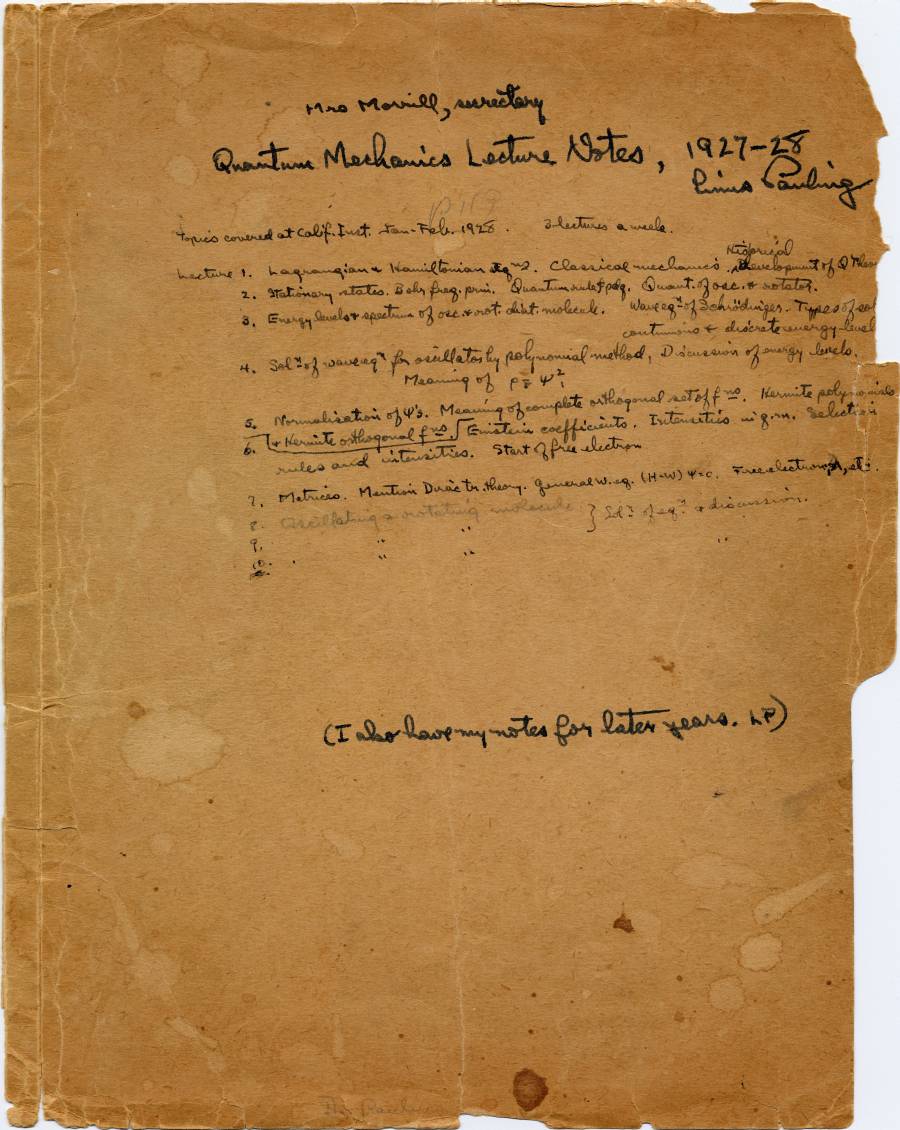 Mrs Morrill, secretary
Quantum Mechanics Lecture Notes, 1927-28
Linus Pauling
Topics covered at Calif. Inst. Jan-Feb. 1928. 3 lectures a week.
Historical
Lecture 1. Lagrangian & Hamiltonian eqⁿs. Classical mechanics. Development of Q Theor
2. Stationary states. Bohr freq. prin. Quantum rule ∮pdq. Quant. of osc. & rotator.
3. Energy levels & spectrum of osc. & rot. diat. molecule. Wave eqⁿ of Schrödinger. Types of sol
continuous & discrete energy-level
4. Solⁿ of wave eqⁿ for oscillator by polynomial method, Discussion of energy levels.
Meaning of ρ = ψ².
5. Normalisation of ψ's. Meaning of complete orthogonal set of fⁿˢ. Hermite polynomials
& Hermite orthogonal fⁿˢ.
6. Einstein coefficients. Intensities in q.m. Selection
rules and intensities. Start of free electron
7. Matrices. Mention Dirac tr. theory. General w. eq. (H-W)ψ=0. Free electron, etc.
8. Oscillating & rotating molecule } Solⁿ of eqⁿ & discussion.
9. " " "
10. "
(I also have my notes for later years. LP)